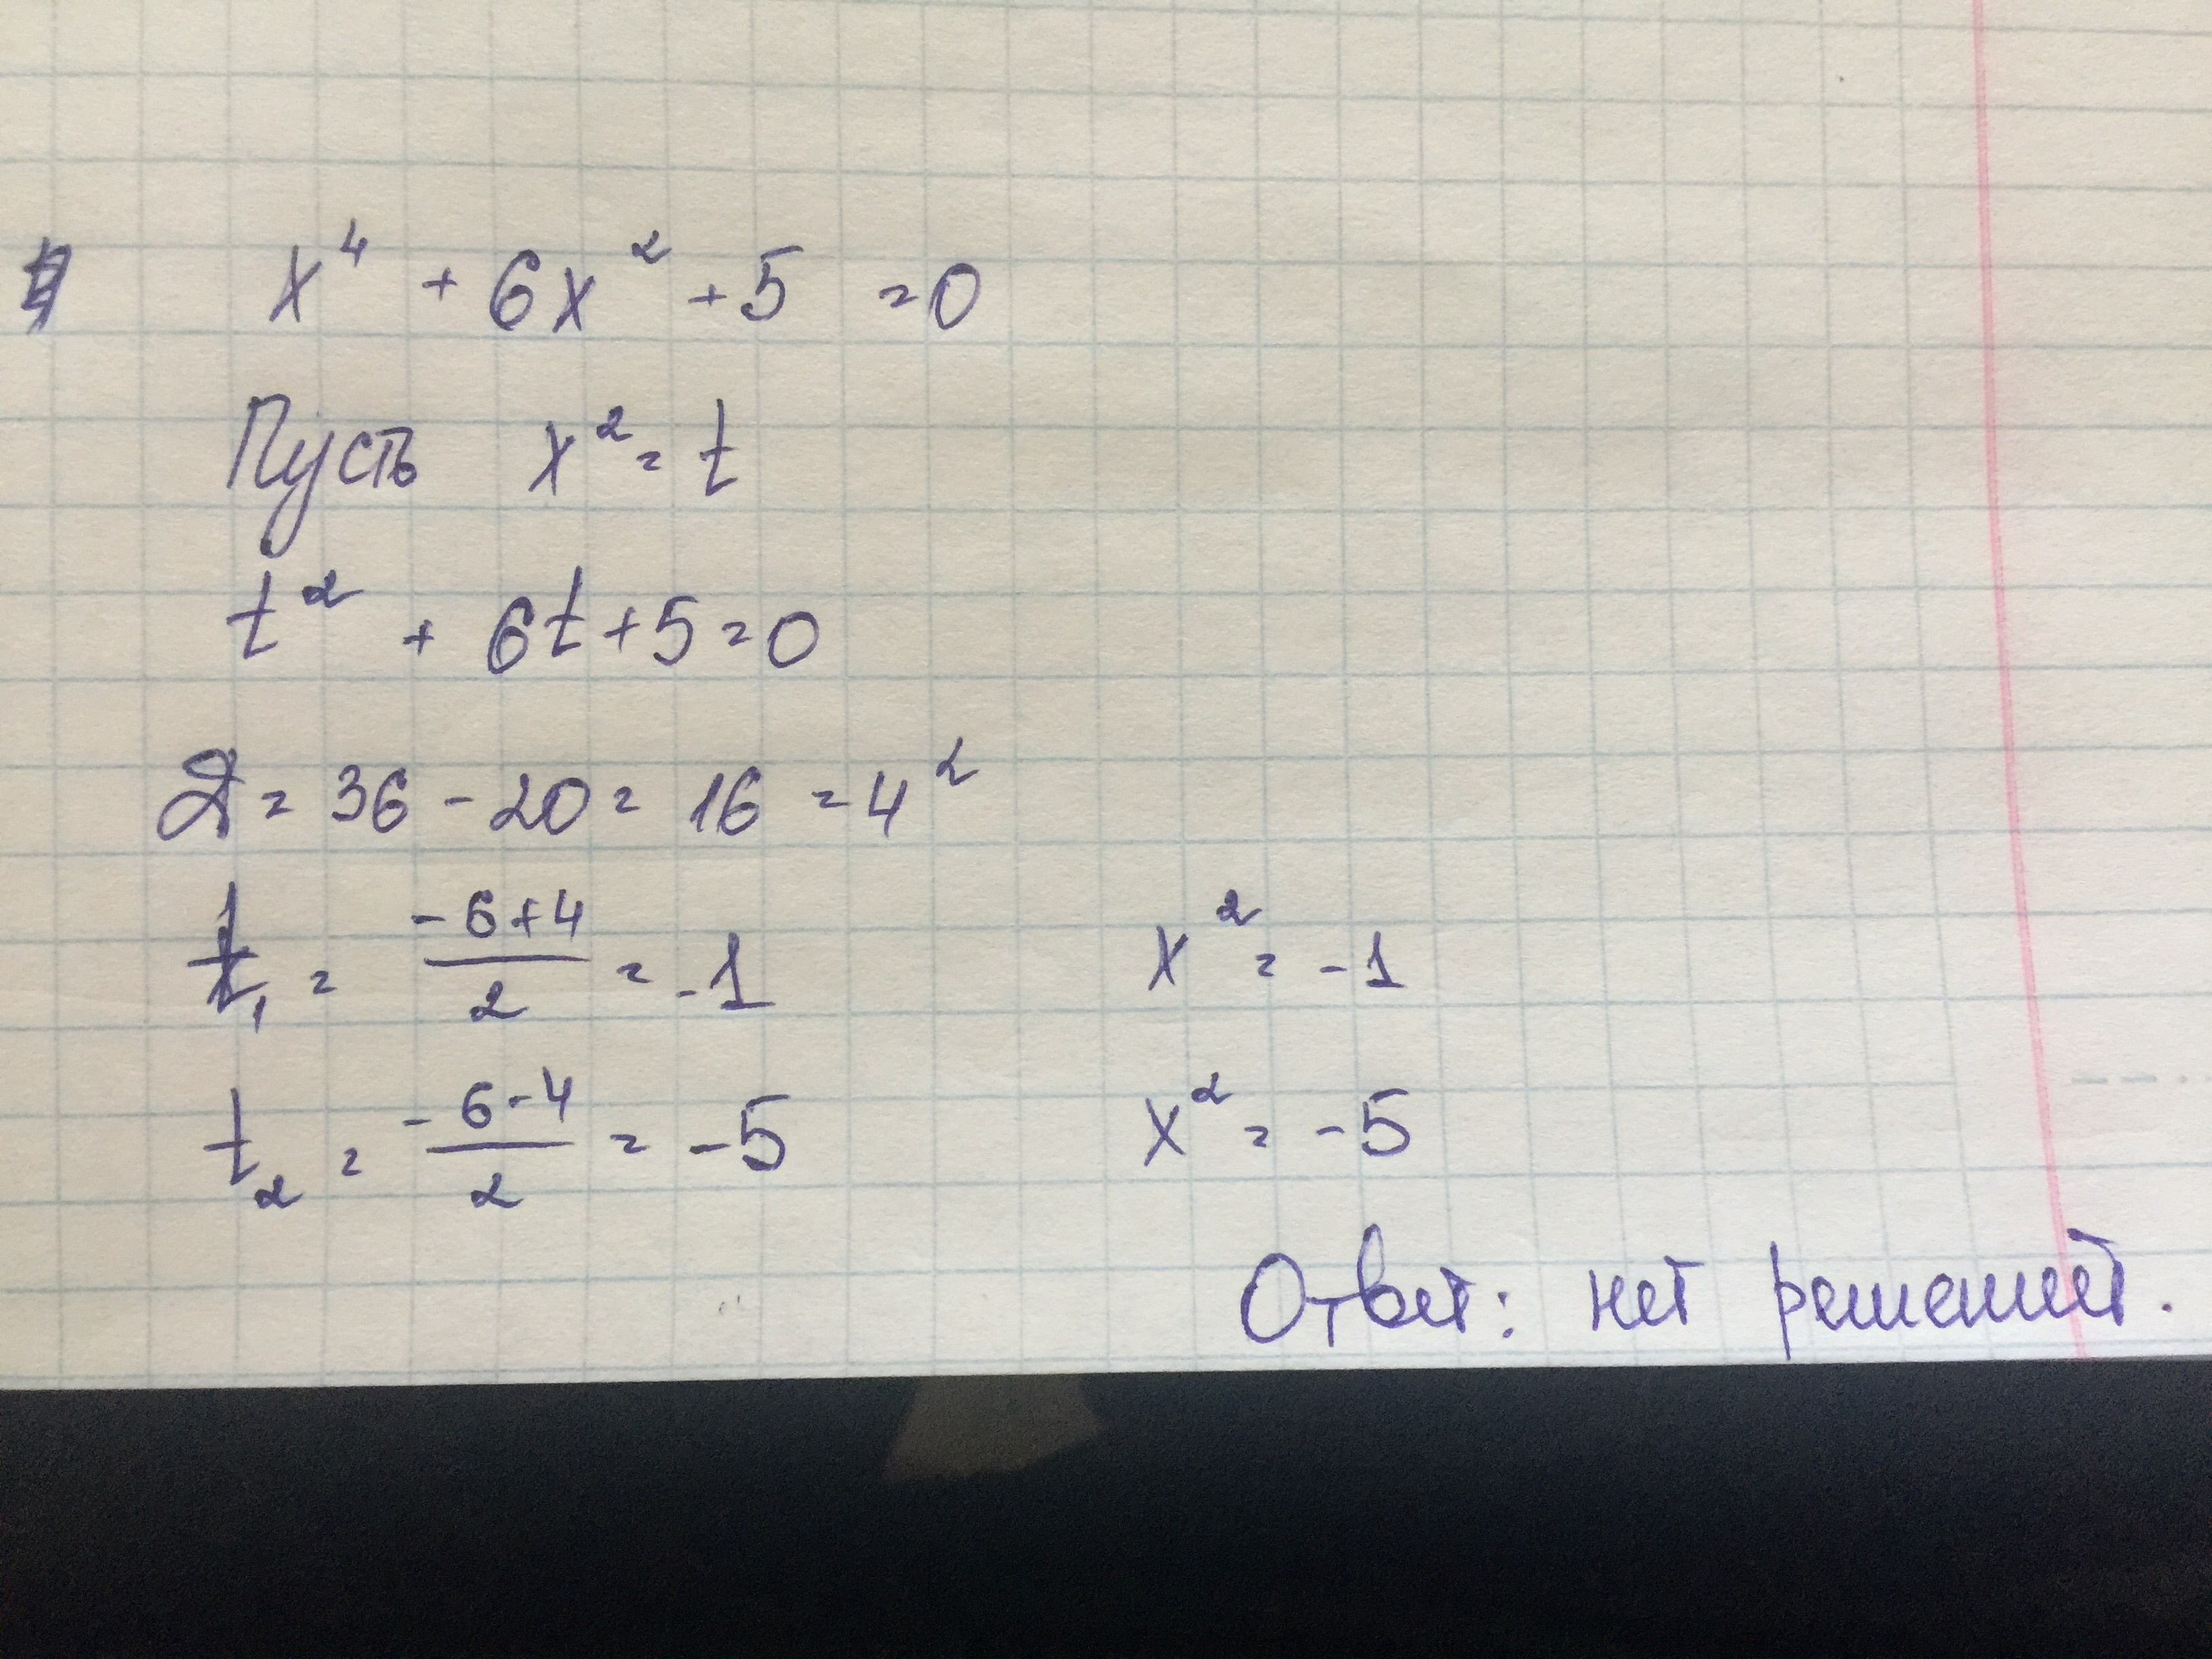 x⁴ + 6x² + 5 = 0
Пусть x² = t
t² + 6t + 5 = 0
D = 36 - 20 = 16 = 4²
t₁ = (-6+4)/2 = -1
x² = -1
t₂ = (-6-4)/2 = -5
x² = -5
Ответ: нет решений.